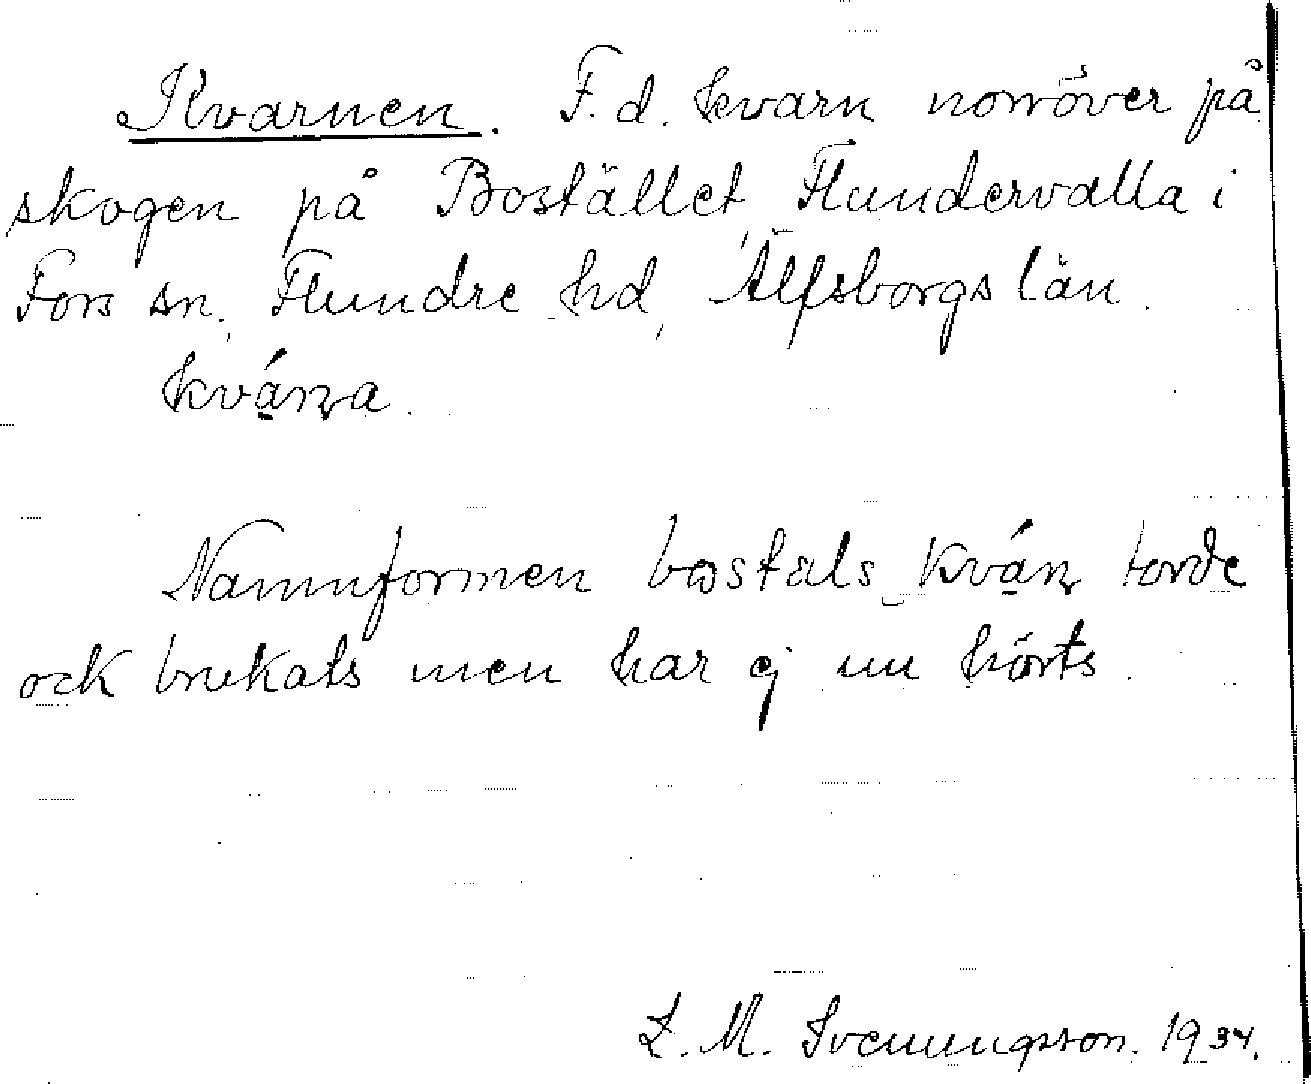 Kvarnen. F. d. kvarn norröver på
skogen på Bostället, Flundervalla i
Fors sn, Flundre hd, Älfsborgs län.
kváṉa.
Namnformen bostals kváṉ torde
ock brukats men har ej nu hörts.
L. M. Svenungsson. 1934.